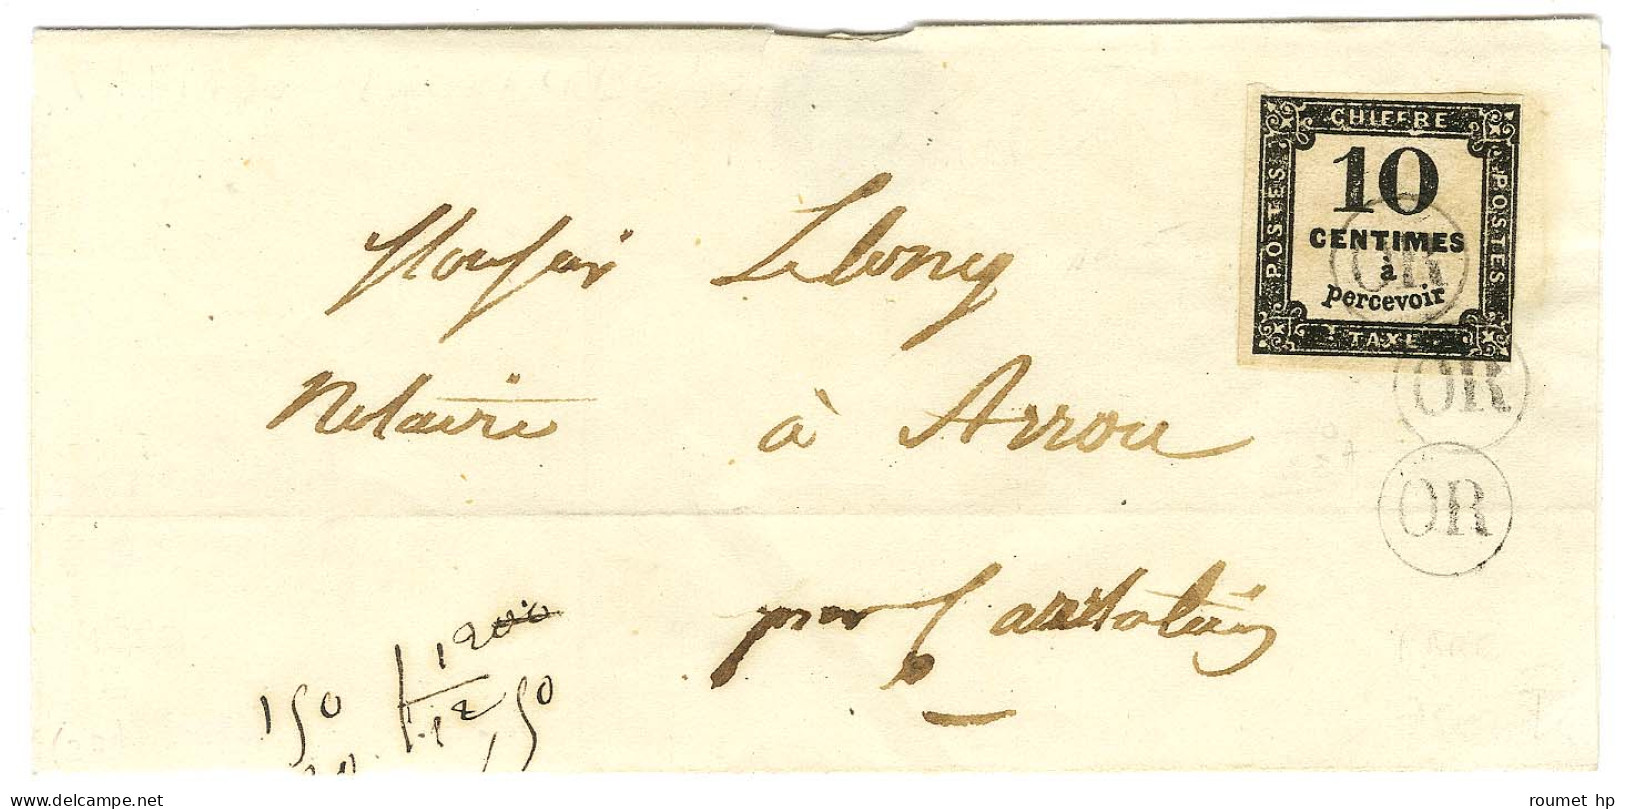 CHIFFRE
10
CENTIMES
à
percevoir
TAXE
POSTES
POSTES
OR
OR
OR
Monsieur
Notaire à Arrou
par
1200
150
12,50
delcampe.net
roumet hp